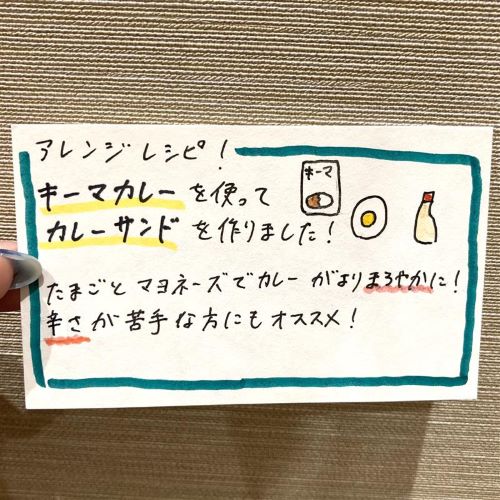 アレンジレシピ！
キーマカレーを使って
カレーサンドを作りました！
キーマ
たまごとマヨネーズでカレーがよりまろやかに！
辛さが苦手な方にもオススメ！